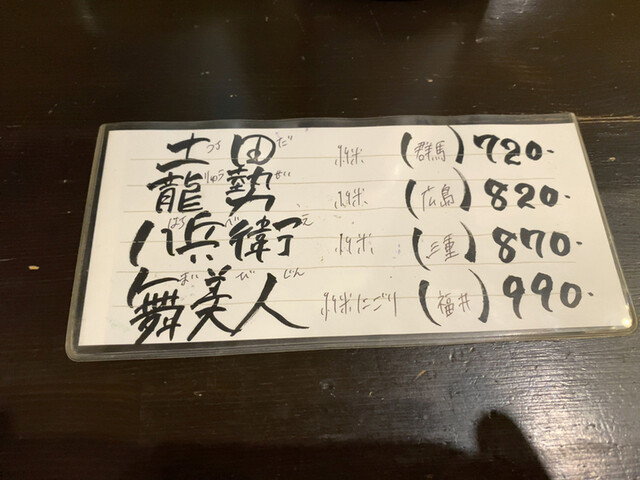 土田 つちだ 純米 (群馬) 720.
龍勢 りゅうせい 純米 (広島) 820.
八兵衛 はちべえ 純米 (三重) 870.
舞美人 まいびじん 純米にごり (福井) 990.